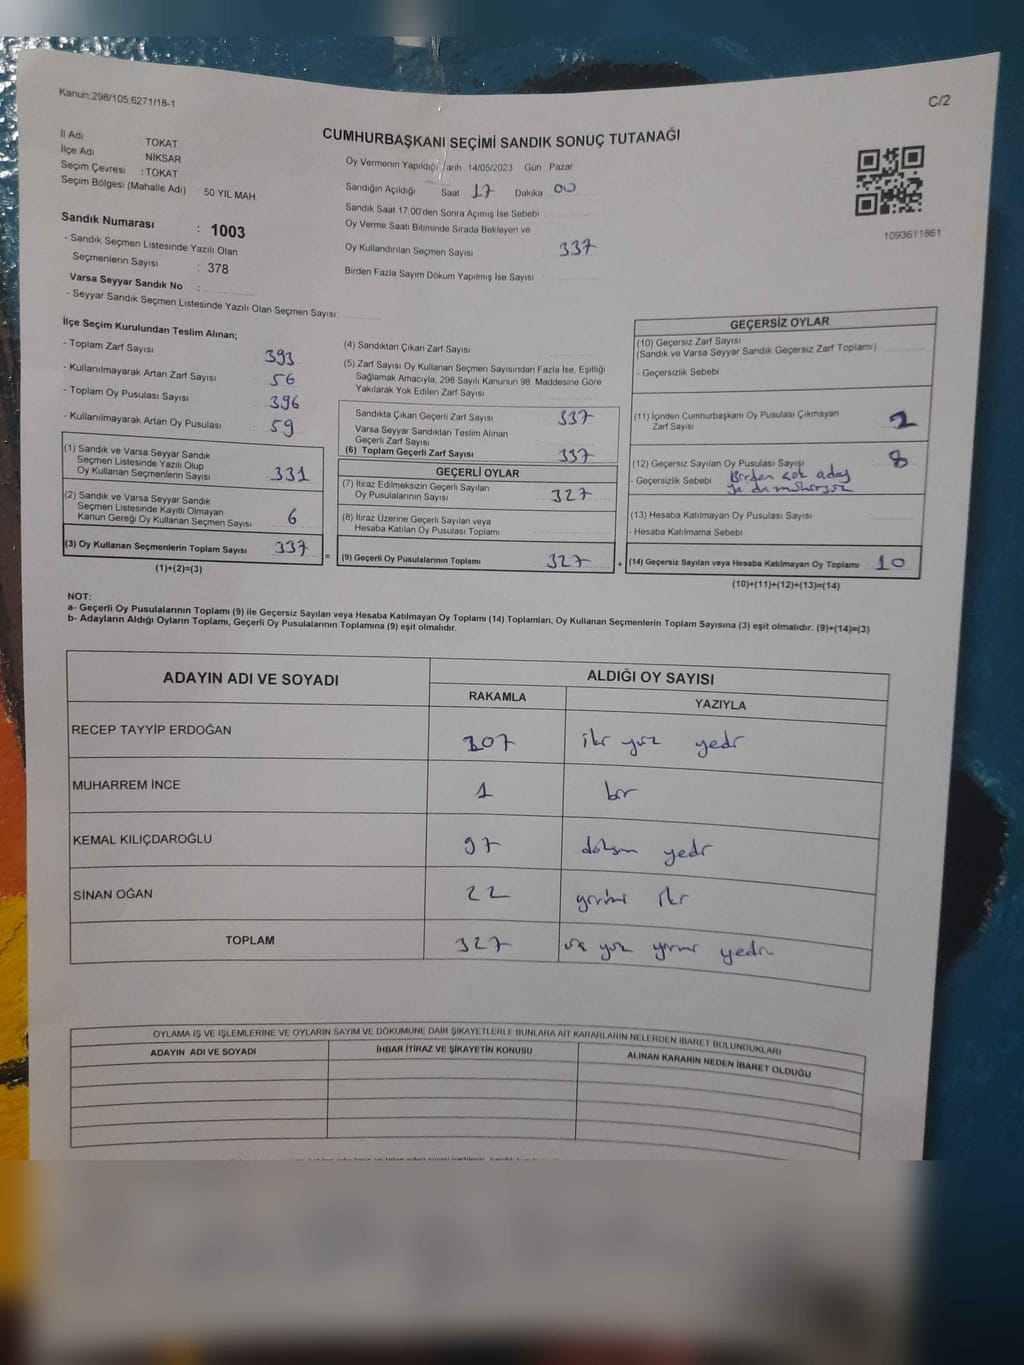 Kanun;298/105,6271/18-1
C/2
CUMHURBAŞKANI SEÇİMİ SANDIK SONUÇ TUTANAĞI
İl Adı : TOKAT
İlçe Adı NİKSAR
Seçim Çevresi : TOKAT
Seçim Bölgesi (Mahalle Adı) : 50 YIL MAH
Oy Vermenin Yapıldığı Tarih 14/05/2023 Gün Pazar
Sandığın Açıldığı Saat 17 Dakika 00
Sandık Saat 17.00'den Sonra Açımış İse Sebebi
Oy Verme Saati Bitiminde Sırada Bekleyen ve
Oy Kullandırılan Seçmen Sayısı 337
Birden Fazla Sayım Döküm Yapılmış İse Sayısı
1093611861
Sandık Numarası : 1003
- Sandık Seçmen Listesinde Yazılı Olan
Seçmenlerin Sayısı : 378
Varsa Seyyar Sandık No :
- Seyyar Sandık Seçmen Listesinde Yazılı Olan Seçmen Sayısı:
İlçe Seçim Kurulundan Teslim Alınan;
- Toplam Zarf Sayısı 393
- Kullanılmayarak Artan Zarf Sayısı 56
- Toplam Oy Pusulası Sayısı : 396
- Kullanılmayarak Artan Oy Pusulası : 59
(1) Sandık ve Varsa Seyyar Sandık
Seçmen Listesinde Yazılı Olup
Oy Kullanan Seçmenlerin Sayısı 331
(2) Sandık ve Varsa Seyyar Sandık
Seçmen Listesinde Kayıtlı Olmayan
Kanun Gereği Oy Kullanan Seçmen Sayısı 6
(3) Oy Kullanan Seçmenlerin Toplam Sayısı 337
(1)+(2)=(3)
=
(4) Sandıktan Çıkan Zarf Sayısı
(5) Zarf Sayısı Oy Kullanan Seçmen Sayısından Fazla İse, Eşitliği
Sağlamak Amacıyla, 298 Sayılı Kanunun 98. Maddesine Göre
Yakılarak Yok Edilen Zarf Sayısı
Sandıkta Çıkan Geçerli Zarf Sayısı 337
Varsa Seyyar Sandıktan Teslim Alınan
Geçerli Zarf Sayısı
(6) Toplam Geçerli Zarf Sayısı 337
GEÇERLİ OYLAR
(7) İtiraz Edilmeksizin Geçerli Sayılan
Oy Pusulalarının Sayısı 327
(8) İtiraz Üzerine Geçerli Sayılan veya
Hesaba Katılan Oy Pusulası Toplamı
(9) Geçerli Oy Pusulalarının Toplamı 327
+
GEÇERSİZ OYLAR
(10) Geçersiz Zarf Sayısı
(Sandık ve Varsa Seyyar Sandık Geçersiz Zarf Toplamı)
- Geçersizlik Sebebi
(11) İçinden Cumhurbaşkanı Oy Pusulası Çıkmayan
Zarf Sayısı 2
(12) Geçersiz Sayılan Oy Pusulası Sayısı 8
- Geçersizlik Sebebi Birden çok aday
ya da mühürsüz
(13) Hesaba Katılmayan Oy Pusulası Sayısı
- Hesaba Katılmama Sebebi
(14) Geçersiz Sayılan veya Hesaba Katılmayan Oy Toplamı 10
(10)+(11)+(12)+(13)=(14)
NOT:
a- Geçerli Oy Pusulalarının Toplamı (9) ile Geçersiz Sayılan veya Hesaba Katılmayan Oy Toplamı (14) Toplamları, Oy Kullanan Seçmenlerin Toplam Sayısına (3) eşit olmalıdır. (9)+(14)=(3)
b- Adayların Aldığı Oyların Toplamı, Geçerli Oy Pusulalarının Toplamına (9) eşit olmalıdır.
ADAYIN ADI VE SOYADI ALDIĞI OY SAYISI
RAKAMLA YAZIYLA
RECEP TAYYİP ERDOĞAN 207 iki yüz yedi
MUHARREM İNCE 1 bir
KEMAL KILIÇDAROĞLU 97 doksan yedi
SİNAN OĞAN 22 yirmi iki
TOPLAM 327 üç yüz yirmi yedi
OYLAMA İŞ VE İŞLEMLERİNE VE OYLARIN SAYIM VE DÖKÜMÜNE DAİR ŞİKAYETLERLE BUNLARA AİT KARARLARIN NELERDEN İBARET BULUNDUKLARI
ADAYIN ADI VE SOYADI İHBAR İTİRAZ VE ŞİKAYETİN KONUSU ALINAN KARARIN NEDEN İBARET OLDUĞU